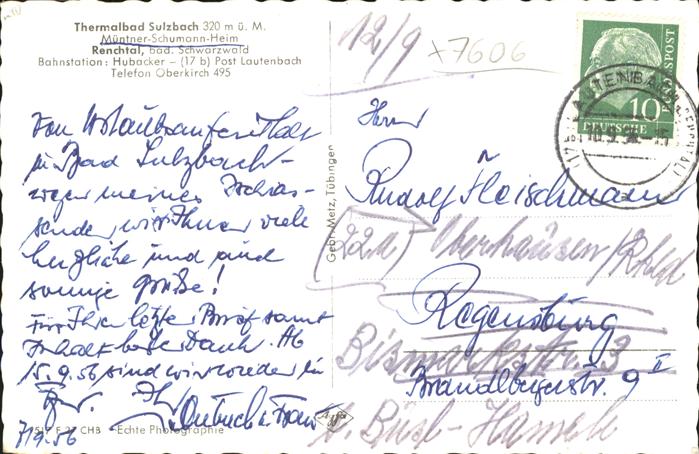 Thermalbad Sulzbach 320 m ü. M.
Müntner-Schumann-Heim
Renchtal, bad. Schwarzwald
Bahnstation: Hubacker – (17 b) Post Lautenbach
Telefon Oberkirch 495
Vom Urlaubsaufenthalt
in Bad Sulzbach –
wegen meines Ischias –
senden wir Ihnen viele
herzliche und
sonnige Grüße!
Für Ihren letzten Brief samt
Inhalt besten Dank. Ab
15.9.56 sind wir wieder in
Ihr
u. Frau
7/9.56
CHB · Echte Photographie
Gebr. Metz, Tübingen
12/9
x7606
Herrn
Rudolf Fleischmann
(22a) Oberhausen/Rhld
Regensburg
Bismarckstr. 3
Brandlbergerstr. 9 II
b. Büsl-
DEUTSCHE BUNDESPOST
10
LAUTENBACH